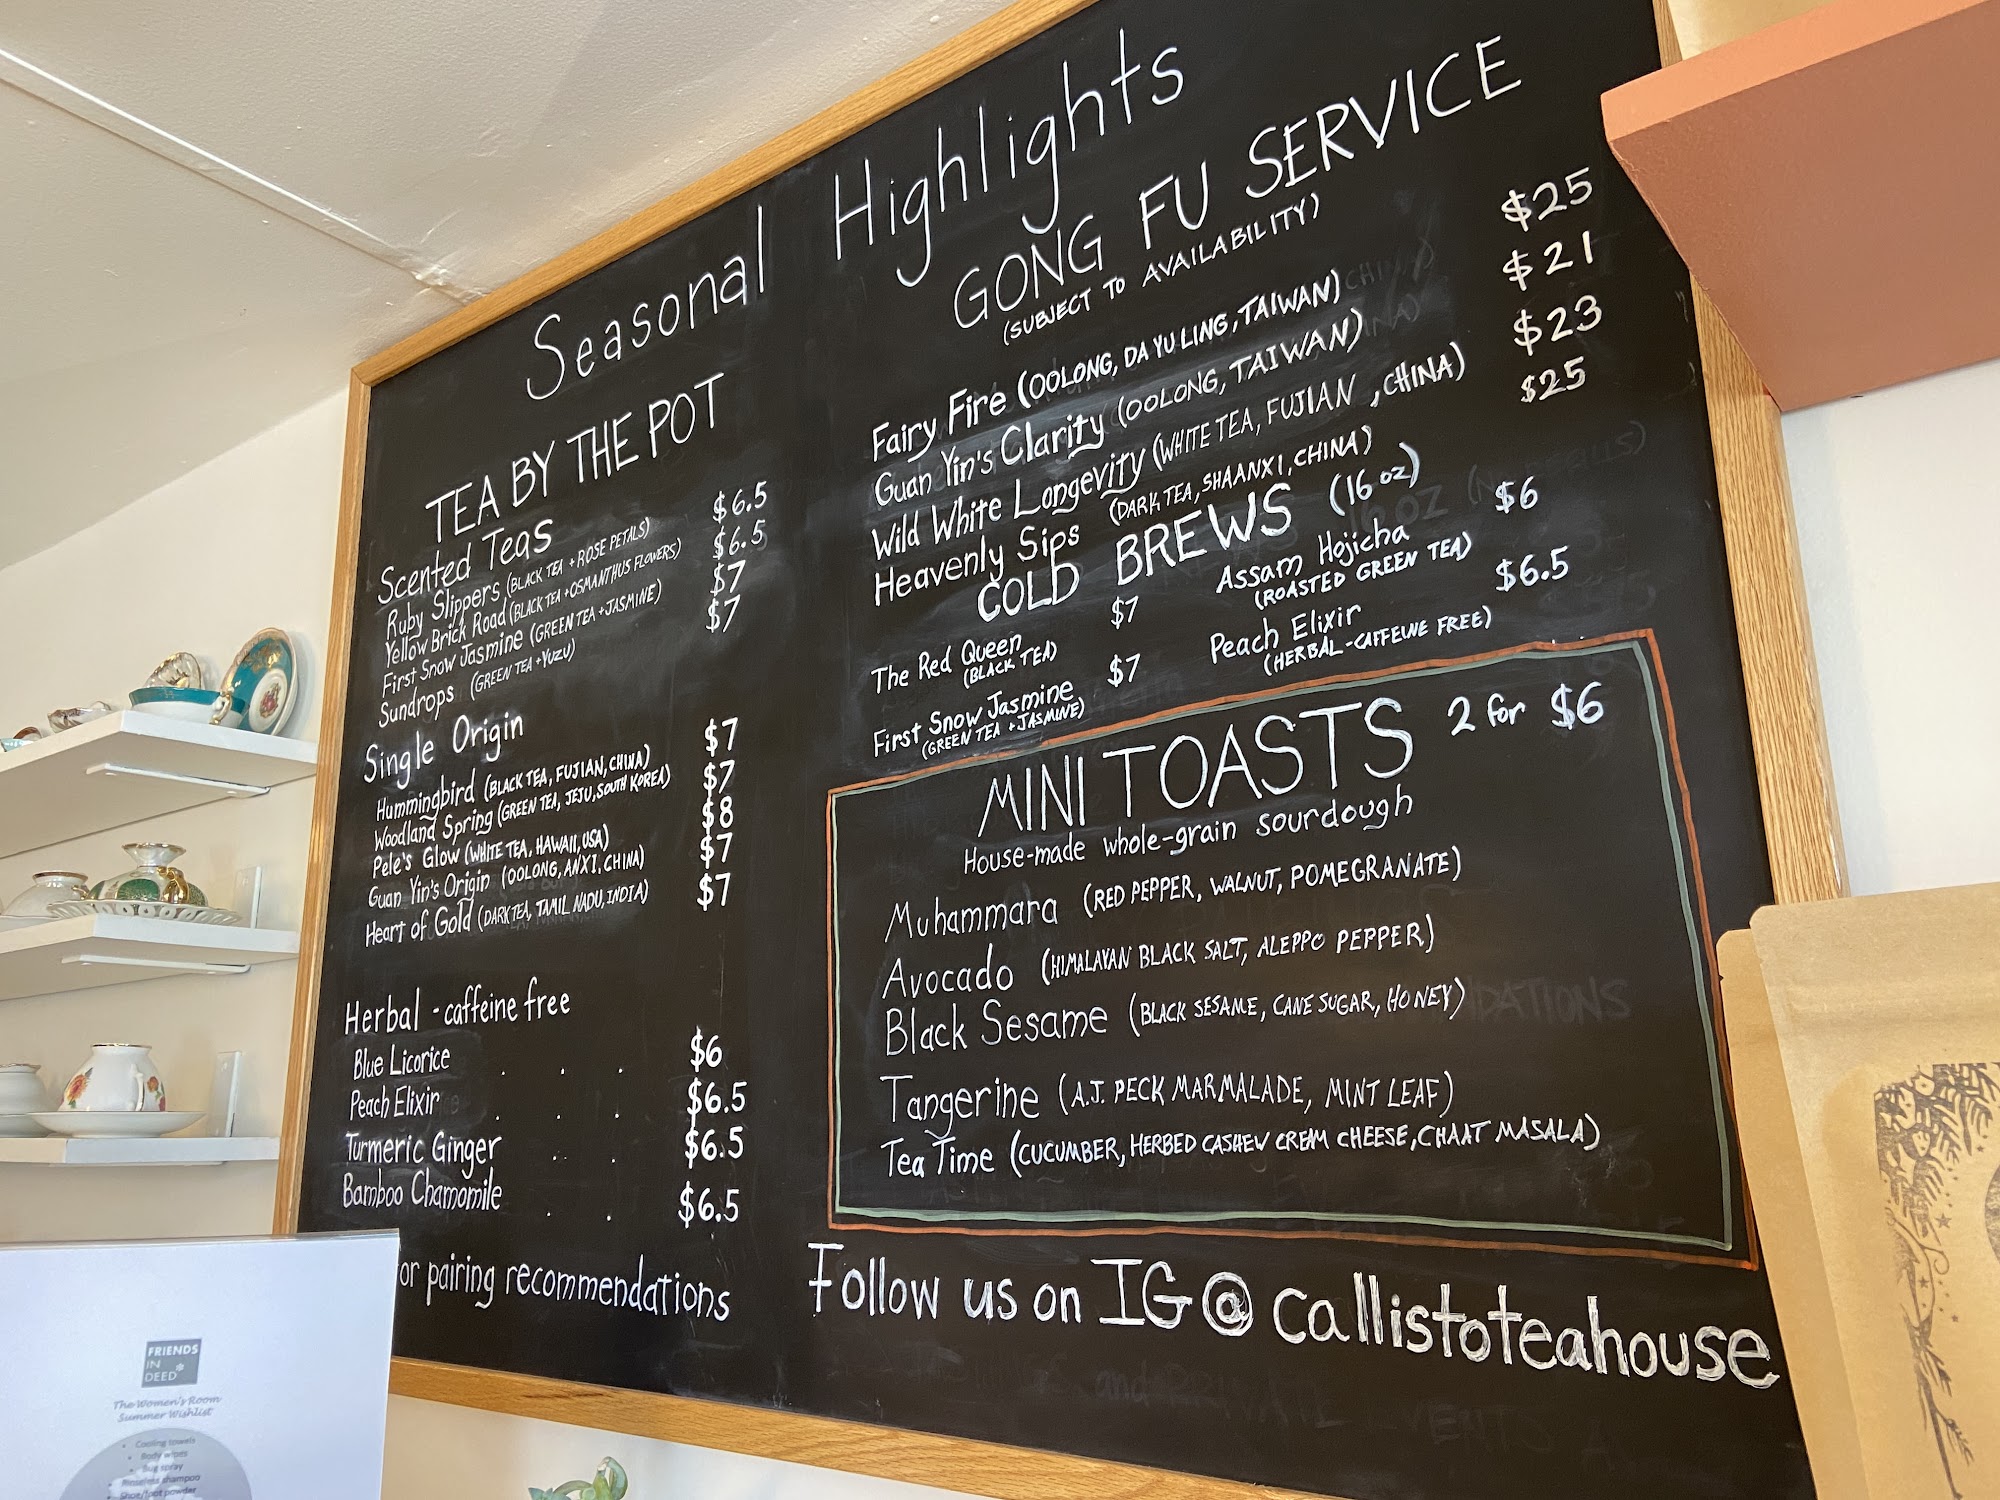 Seasonal Highlights
TEA BY THE POT
Scented Teas
Ruby Slippers (BLACK TEA + ROSE PETALS) $6.5
Yellow Brick Road (BLACK TEA + OSMANTHUS FLOWERS) $6.5
First Snow Jasmine (GREEN TEA + JASMINE) $7
Sundrops (GREEN TEA + YUZU) $7
Single Origin
Hummingbird (BLACK TEA, FUJIAN, CHINA) $7
Woodland Spring (GREEN TEA, JEJU, SOUTH KOREA) $7
Pele's Glow (WHITE TEA, HAWAII, USA) $8
Guan Yin's Origin (OOLONG, ANXI, CHINA) $7
Heart of Gold (DARK TEA, TAMIL NADU, INDIA) $7
Herbal - caffeine free
Blue Licorice . . . $6
Peach Elixir . . . $6.5
Turmeric Ginger . . . $6.5
Bamboo Chamomile . . $6.5
or pairing recommendations
GONG FU SERVICE
(SUBJECT TO AVAILABILITY)
Fairy Fire (OOLONG, DA YU LING, TAIWAN) $25
Guan Yin's Clarity (OOLONG, TAIWAN) $21
Wild White Longevity (WHITE TEA, FUJIAN, CHINA) $23
Heavenly Sips (DARK TEA, SHAANXI, CHINA) $25
COLD BREWS (16 oz)
The Red Queen $7
(BLACK TEA)
First Snow Jasmine $7
(GREEN TEA + JASMINE)
Assam Hojicha $6
(ROASTED GREEN TEA)
Peach Elixir $6.5
(HERBAL-CAFFEINE FREE)
MINI TOASTS 2 for $6
House-made whole-grain sourdough
Muhammara (RED PEPPER, WALNUT, POMEGRANATE)
Avocado (HIMALAYAN BLACK SALT, ALEPPO PEPPER)
Black Sesame (BLACK SESAME, CANE SUGAR, HONEY)
Tangerine (A.J. PECK MARMALADE, MINT LEAF)
Tea Time (CUCUMBER, HERBED CASHEW CREAM CHEESE, CHAAT MASALA)
Follow us on IG @ callistoteahouse
FRIENDS
IN
DEED
The Women's Room
Summer Wishlist
• Cooling towels
• Body wipes
• Bug spray
shampoo
powder